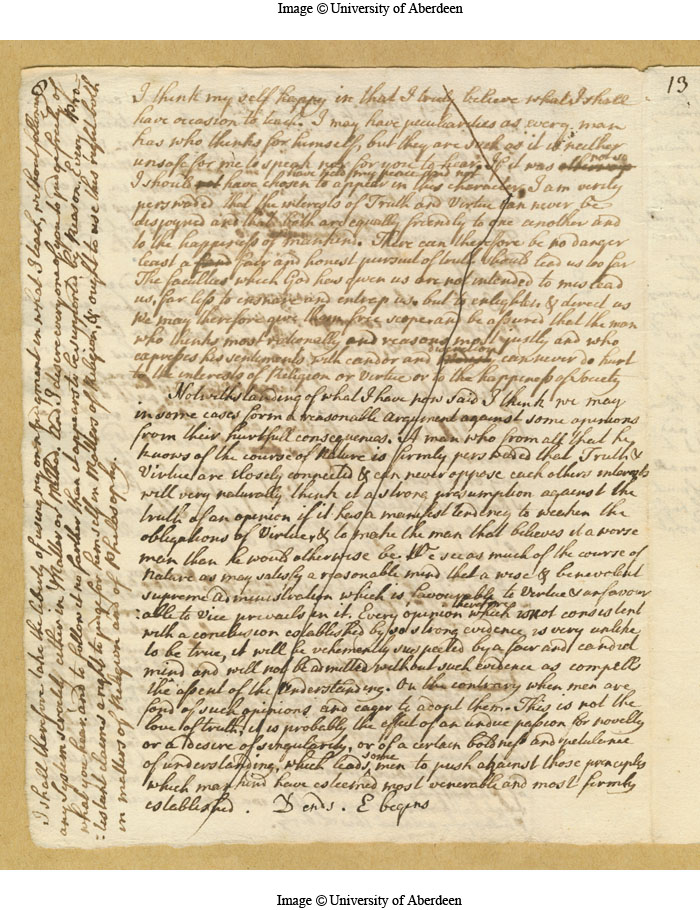 Image © University of Aberdeen
13
I think my self happy in that I truly believe what I shall
have occasion to teach. I may have peculiarities as every man
has who thinks for himself, but they are such as it is neither
unsafe for me to speak nor for you to hear. If it was otherwise not so
I should not have held my peace and not have chosen to appear in this character. I am verily
perswaded that the interests of Truth and Virtue can never be
disjoyned and that both are equally friendly to one another and
to the happiness of mankind. There can therefore be no danger
least a fand fair and honest pursuit of truth should lead us too far
The faculties which God has given us are not intended to mis lead
us, far less to insnare and entrap us. but to enlighten & direct us
We may therefore give them free scope and be assured that the man
who thinks most rationally and reasons most justly and who
expresses his sentiments with candor and can never do hurt
to the interests of Religion or Virtue or to the happiness of Society
Notwithstanding of what I have now said I think we may
in some cases form a reasonable argument against some opinions
from their hurtfull consequences. A man who from all that he
knows of the course of Nature is firmly perswaded that Truth &
Virtue are closely connected & can never oppose each others interests
will very naturally think it a strong presumption against the
truth of an opinion if it has a manifest tendency to weaken the
obligations of Virtue, & to make the man that believes it a worse
man than he would otherwise be. We see as much of the course of
Nature as may satisfy a reasonable mind that a wise & benevolent
supreme administration which is favourable to Virtue & unfavour
:able to Vice prevails in it. Every opinion therefore which is not consistent
with a conclusion established by so strong evidence is very unlike
to be true, it will be vehemently suspected by a fair and candid
mind and will not be admitted without such evidence as compells
the assent of the Understanding. On the contrary when men are
fond of such opinions and eager to adopt them. This is not the
love of truth, it is probably the effect of an undue passion for novelty
or a desire of singularity, or of a certain boldness and petulence
of understanding, which leads some men to push against those principles
which mankind have esteemed most venerable and most firmly
established. D ends. E begins
I shall therefore take the liberty of using my own judgment in what I teach, without following
any System servilely either in Matter or Method. And I desire every one of you to judge freely of
what you hear and to follow it no farther than it appears to be supported by Reason. Every Pro
:testant claims a right to judge for himself in Matters of Religion, & ought to use this right both
in matters of Religion and of Philosophy.
Image © University of Aberdeen